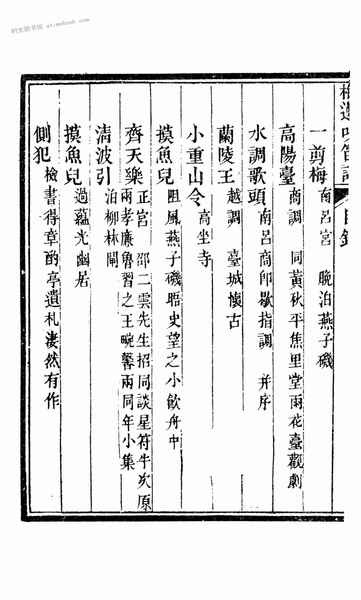 梅邊吹笛譜 目錄
一剪梅 南呂宮 晚泊燕子磯
高陽臺 商調 同黃秋平焦里堂雨花臺觀劇
水調歌頭 南呂商卽歇指調 并序
蘭陵王 越調 臺城懷古
小重山令 高坐寺
摸魚兒 阻風燕子磯晤史望之小飮舟中
齊天樂 正宮 邵二雲先生招同談星符牛次原
兩孝廉魯習之王畹馨兩同年小集
清波引 泊柳林閘
摸魚兒 過蘊光幽居
側犯 檢書得章酌亭遺札淒然有作